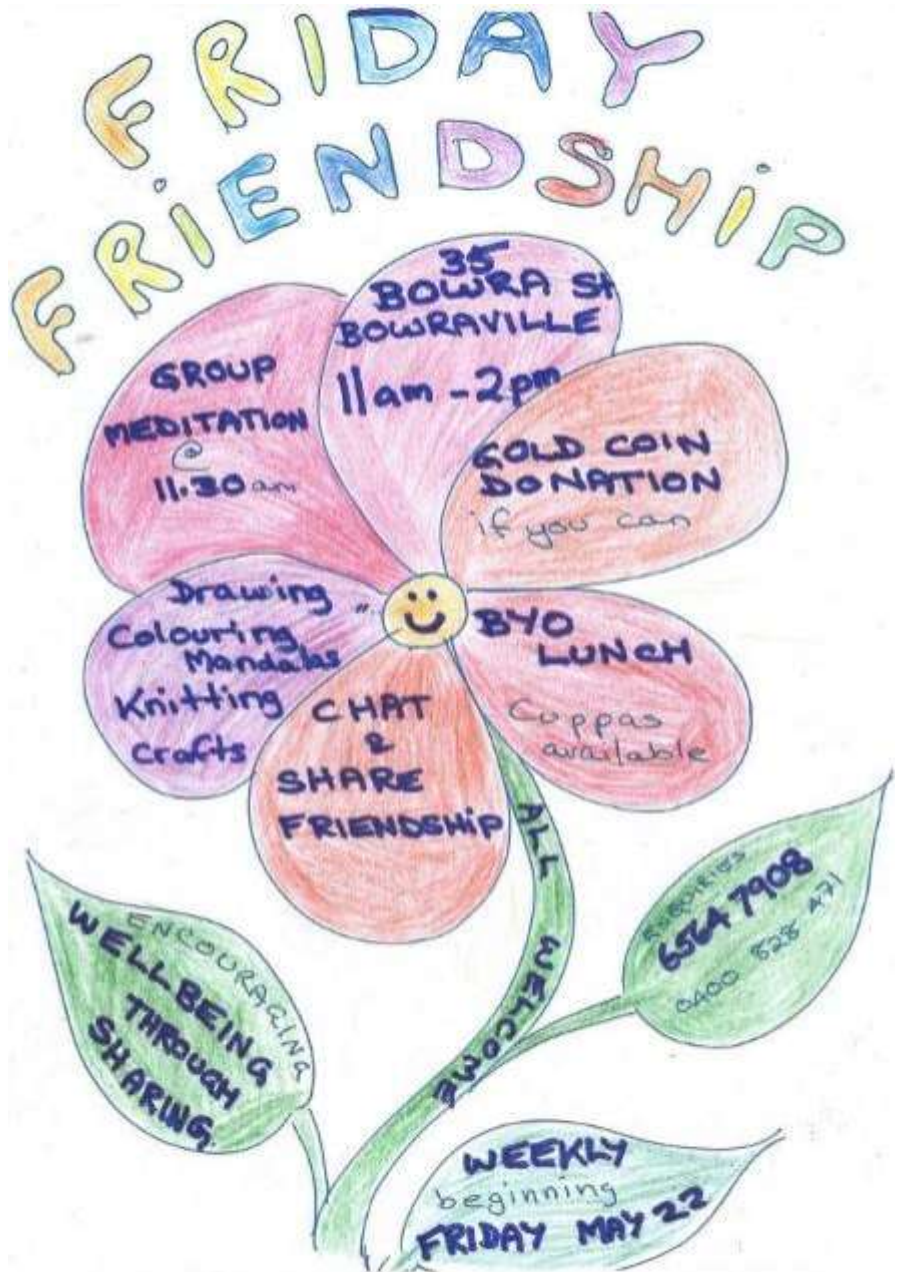 FRIDAY
FRIENDSHiP
35
BOWRA St
BOWRAVILLE
11am - 2pm
GROUP
MEDITATION
@
11.30 am
GOLD COIN
DONATION
if you can
Drawing
Colouring
Mandalas
Knitting
Crafts
BYO
LUNCH
Cuppas
available
CHAT
&
SHARE
FRIENDSHiP
ALL WELCOME
ENCOURAGING
WELLBEING
THROUGH
SHARING
ENQUIRIES
6564 7908
0400 828 471
WEEKLY
beginning
FRIDAY MAY 22